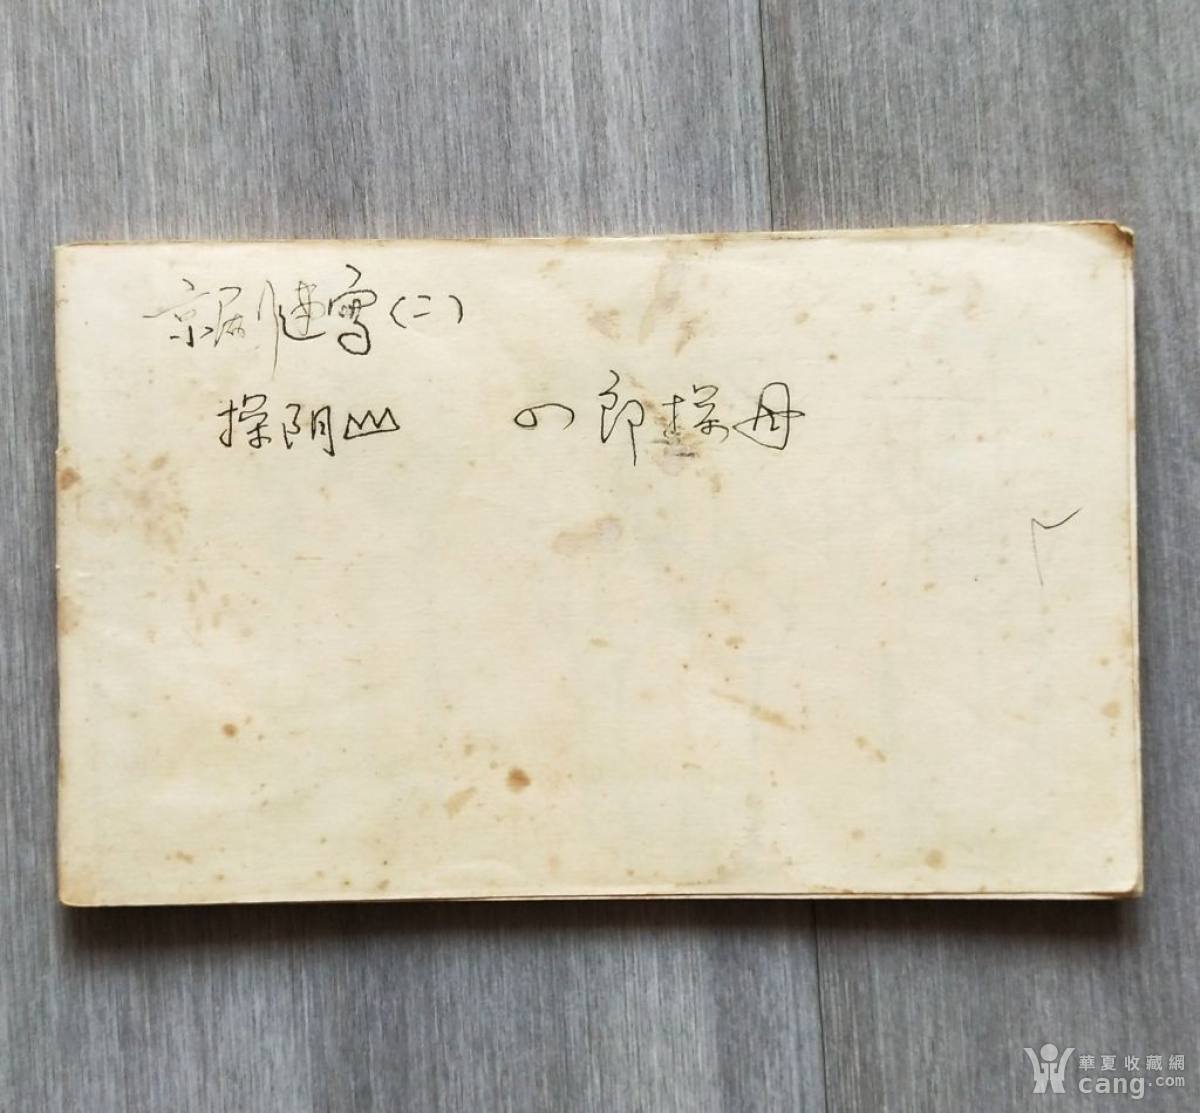 京剧速写(二)
探阴山 四郎探母
華夏收藏網
cang.com